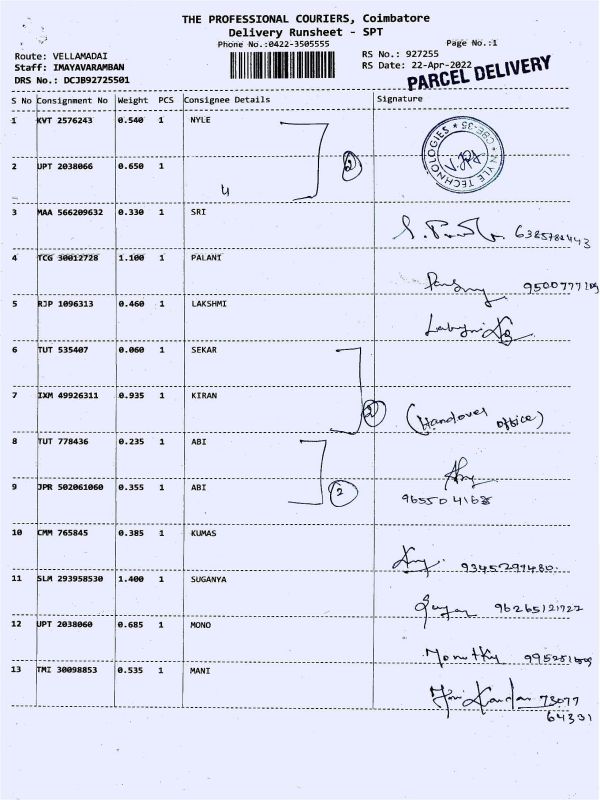 THE PROFESSIONAL COURIERS, Coimbatore
Delivery Runsheet - SPT
Phone No.:0422-3505555
Page No.:1
Route: VELLAMADAI
RS No.: 927255
Staff: IMAYAVARAMBAN
RS Date: 22-Apr-2022
DRS No.: DCJB92725501
PARCEL DELIVERY
S No Consignment No Weight PCS Consignee Details Signature
1 KVT 2576243 0.540 1 NYLE
2
NYLE TECHNOLOGIES * CBE-35 *
2 UPT 2038066 0.650 1
4
3 MAA 566209632 0.330 1 SRI
4 TCG 30012728 1.100 1 PALANI
5 RJP 1096313 0.460 1 LAKSHMI
6 TUT 535407 0.060 1 SEKAR
7 IXM 49926311 0.935 1 KIRAN
2
(Handover office)
8 TUT 778436 0.235 1 ABI
9 JPR 502061060 0.355 1 ABI
2
10 CMM 765845 0.385 1 KUMAS
9345299480
11 SLM 293958530 1.400 1 SUGANYA
12 UPT 2038060 0.685 1 MONO
13 TMI 30098853 0.535 1 MANI
73077
64331